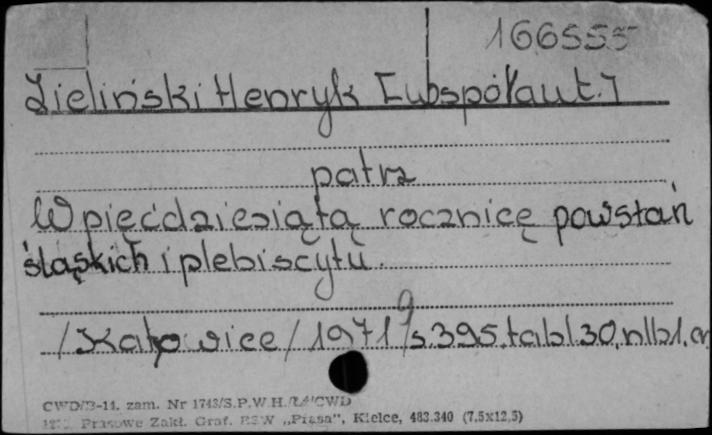 166555
Zieliński Henryk [Współaut.]
patrz
W pięćdziesiątą rocznicę powstań
śląskich i plebiscytu.
/Katowice/ 1971 s. 395, tabl. 30, nlb1,
CWD/B-11. zam. Nr 1743/S.P.W.H. CWD
Prasowe Zakł. Graf. RSW „Prasa”, Kielce, 483.340 (7,5x12,5)